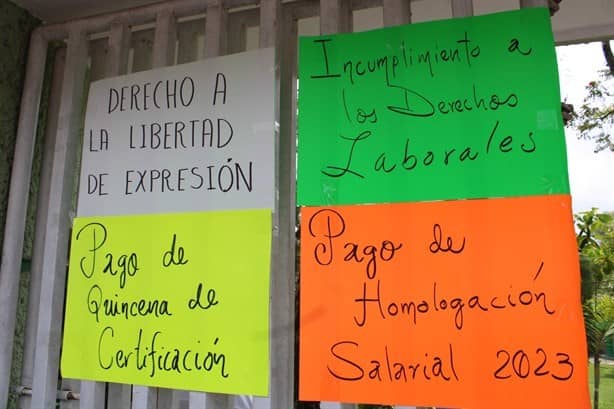 DERECHO A
LA LIBERTAD
DE EXPRESIÓN
Incumplimiento a
los Derechos
Laborales
Pago de
Quincena de
Certificación
Pago de
Homologación
Salarial 2023